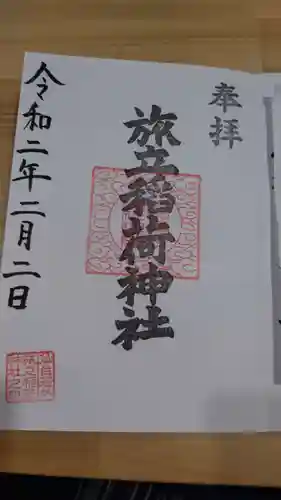 奉拝
旅立稲荷神社
令和二年二月二日